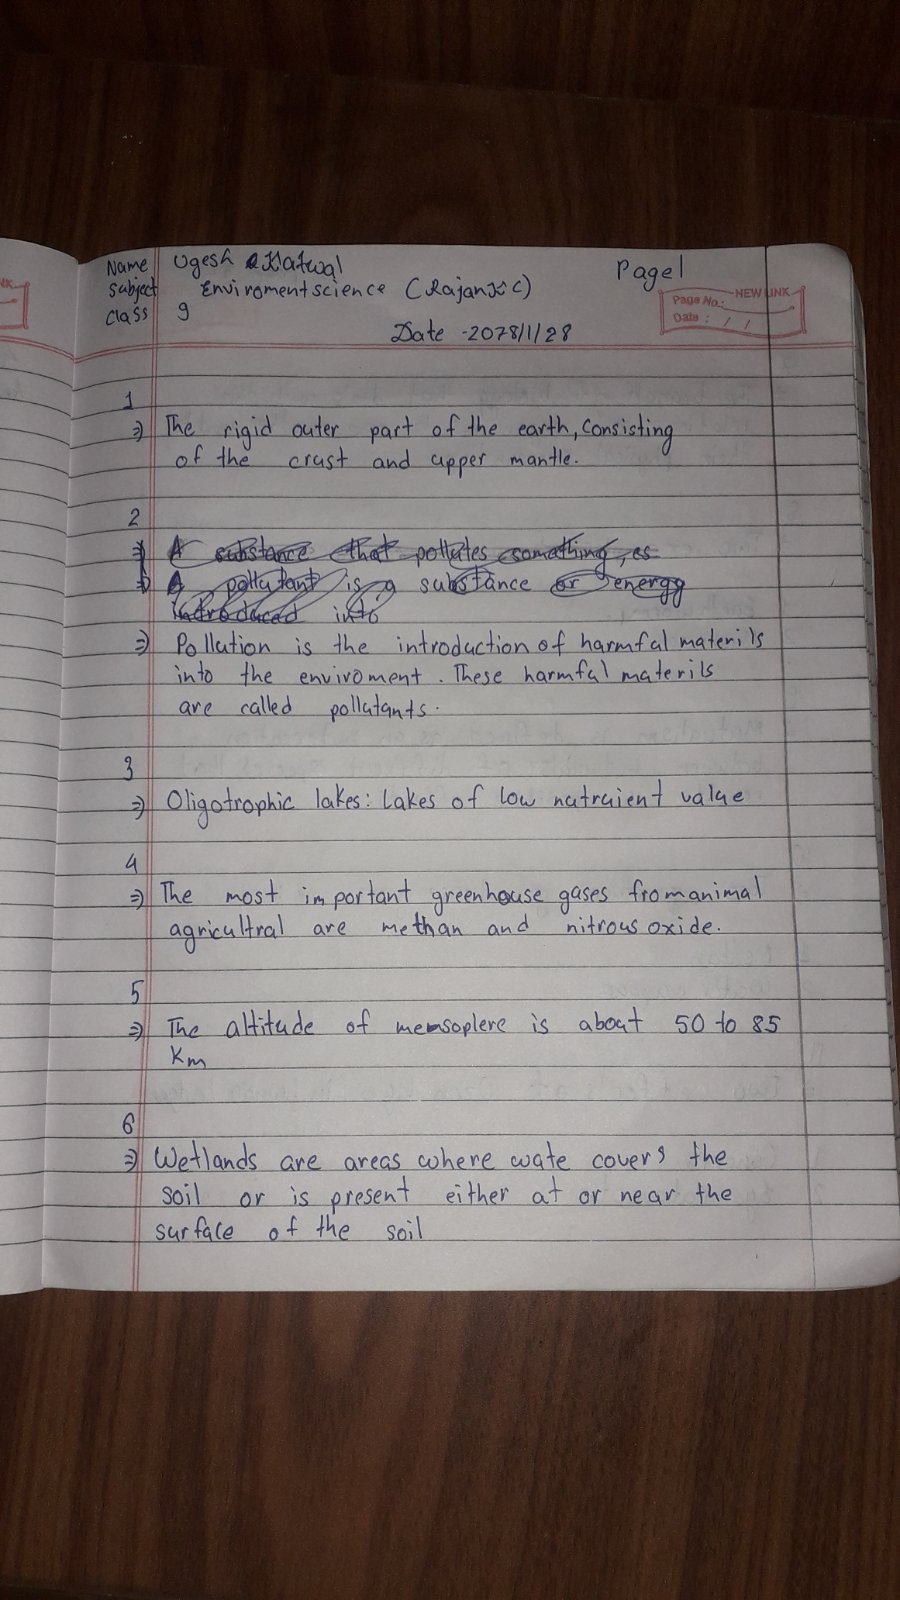 Name Ugesh Katwal
Page 1
Subject Enviromentscience (Rajan K C)
Class 9
NEW LINK
Page No.:
Date : / /
Date -2078/1/28
1
⇒ The rigid outer part of the earth, consisting
of the crust and upper mantle.
2
A substance that pollutes something, as
A pollutant is a substance or energy
introduced into
⇒ Pollution is the introduction of harmful materils
into the enviroment. These harmful materils
are called pollutants.
3
⇒ Oligotrophic lakes: Lakes of low nutraient value
4
⇒ The most important greenhouse gases from animal
agricultral are methan and nitrous oxide.
5
⇒ The altitude of mensoplere is about 50 to 85
Km
6
⇒ Wetlands are areas where wate covers the
soil or is present either at or near the
surface of the soil